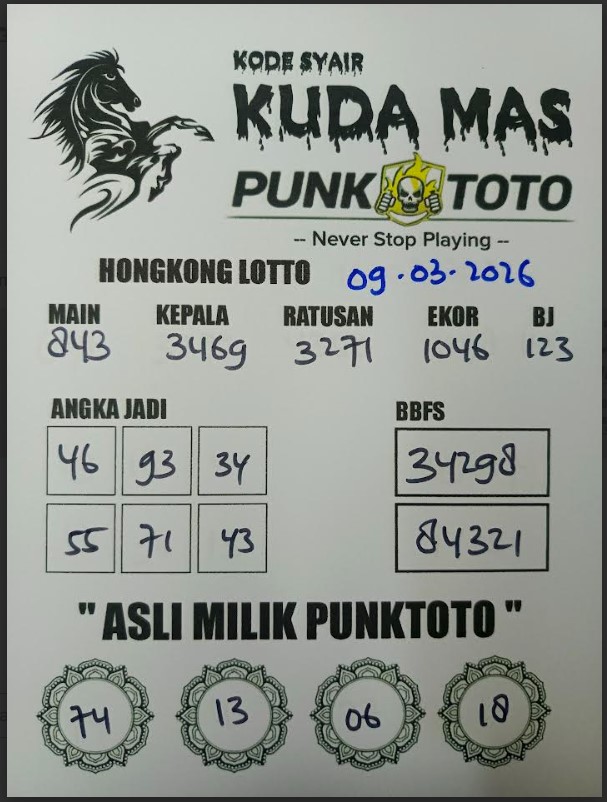 KODE SYAIR
KUDA MAS
PUNK TOTO
-- Never Stop Playing --
HONGKONG LOTTO 09.03.2026
MAIN KEPALA RATUSAN EKOR BJ
843 3469 3271 1046 123
ANGKA JADI BBFS
46 93 34 34298
55 71 43 84321
" ASLI MILIK PUNKTOTO "
74 13 06 18